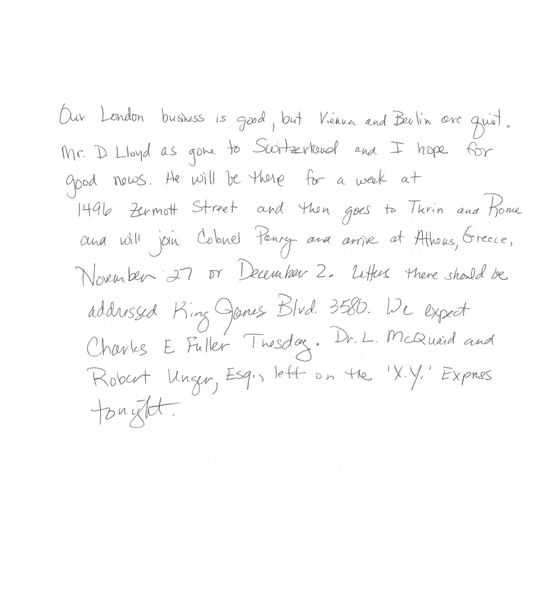 Our London business is good, but Vienna and Berlin are quiet.
Mr. D Lloyd as gone to Switzerland and I hope for
good news. He will be there for a week at
1496 Zermott Street and then goes to Turin and Rome
and will join Colonel Parry and arrive at Athens, Greece,
November 27 or December 2. Letters there should be
addressed King James Blvd. 3580. We expect
Charles E Fuller Tuesday. Dr. L. McQuaid and
Robert Unger, Esq., left on the 'X.Y.' Express
tonight.